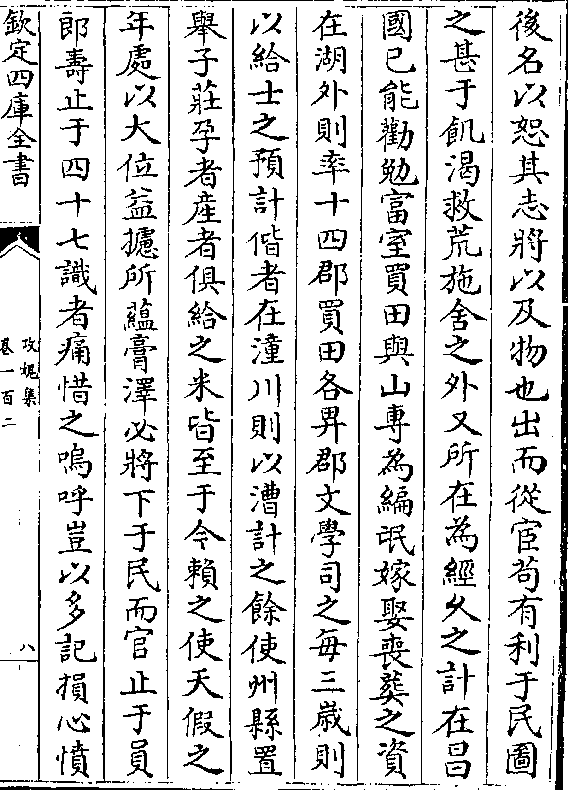 後名以恕其志將以及物也出而從宦苟有利于民圖
之甚于飢渴救荒施舍之外又所在為經久之計在昌
國已能勸勉富室買田與山專為編氓嫁娶喪葬之資
在湖外則率十四郡買田各畀郡文學司之每三歲則
以給士之預計偕者在潼川則以漕計之餘使州縣置
舉子莊孕者産者俱給之米皆至于今賴之使天假之
年處以大位益攄所蘊膏澤必將下于民而官止于員
郎壽止于四十七識者痛惜之嗚呼豈以多記損心憤
欽定四庫全書
攻媿集
卷一百二
八